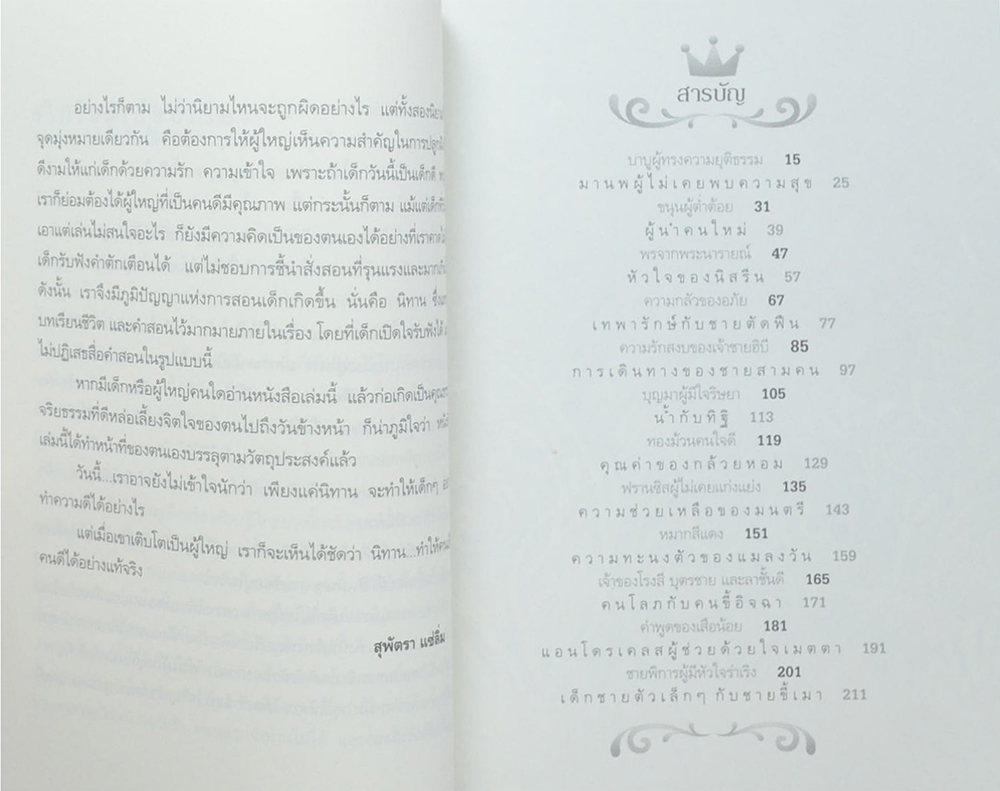 อย่างไรก็ตาม ไม่ว่านิยามไหนจะถูกผิดอย่างไร แต่ทั้งสองนิยาม
จุดมุ่งหมายเดียวกัน คือต้องการให้ผู้ใหญ่เห็นความสำคัญในการปลูกฝัง
ดีงามให้แก่เด็กด้วยความรัก ความเข้าใจ เพราะถ้าเด็กวันนี้เป็นเด็กดี
เราก็ย่อมต้องได้ผู้ใหญ่ที่เป็นคนดีมีคุณภาพ แต่กระนั้นก็ตาม แม้แต่เด็ก
เอาแต่เล่นไม่สนใจอะไร ก็ยังมีความคิดเป็นของตนเองได้อย่างที่เราคาดไม่
เด็กรับฟังคำตักเตือนได้ แต่ไม่ชอบการชี้นำสั่งสอนที่รุนแรงและมากเกิน
ดังนั้น เราจึงมีภูมิปัญญาแห่งการสอนเด็กเกิดขึ้น นั่นคือ นิทาน
บทเรียนชีวิต และคำสอนไว้มากมายภายในเรื่อง โดยที่เด็กเปิดใจรับฟังได้
ไม่ปฏิเสธสื่อคำสอนในรูปแบบนี้
หากมีเด็กหรือผู้ใหญ่คนใดอ่านหนังสือเล่มนี้ แล้วก่อเกิดเป็นคุณ
จริยธรรมที่ดีหล่อเลี้ยงจิตใจของตนไปถึงวันข้างหน้า ก็น่าภูมิใจว่า
เล่มนี้ได้ทำหน้าที่ของตนเองบรรลุตามวัตถุประสงค์แล้ว
วันนี้...เราอาจยังไม่เข้าใจนักว่า เพียงแค่นิทาน จะทำให้เด็กๆ
ทำความดีได้อย่างไร
แต่เมื่อเขาเติบโตเป็นผู้ใหญ่ เราก็จะเห็นได้ชัดว่า นิทาน...ทำให้คน
คนดีได้อย่างแท้จริง
สุพัตรา แซ่ลิ่ม
สารบัญ
บาบูผู้ทรงความยุติธรรม 15
มานพผู้ไม่เคยพบความสุข 25
ขนุนผู้ต่ำต้อย 31
ผู้นำคนใหม่ 39
พรจากพระนารายณ์ 47
หัวใจของนิสรีน 57
ความกลัวของอภัย 67
เทพารักษ์กับชายตัดฟืน 77
ความรักสงบของเจ้าชายฮิบี 85
การเดินทางของชายสามคน 97
บุญมาผู้มีใจริษยา 105
น้ำกับทิฐิ 113
ทองม้วนคนใจดี 119
คุณค่าของกล้วยหอม 129
ฟรานซิสผู้ไม่เคยแก่งแย่ง 135
ความช่วยเหลือของมนตรี 143
หมากสีแดง 151
ความทะนงตัวของแมลงวัน 159
เจ้าของโรงสี บุตรชาย และลาชั้นดี 165
คนโลภกับคนขี้อิจฉา 171
คำพูดของเสือน้อย 181
แอนโดรเคลสผู้ช่วยด้วยใจเมตตา 191
ชายพิการผู้มีหัวใจร่าเริง 201
เด็กชายตัวเล็กๆ กับชายขี้เมา 211